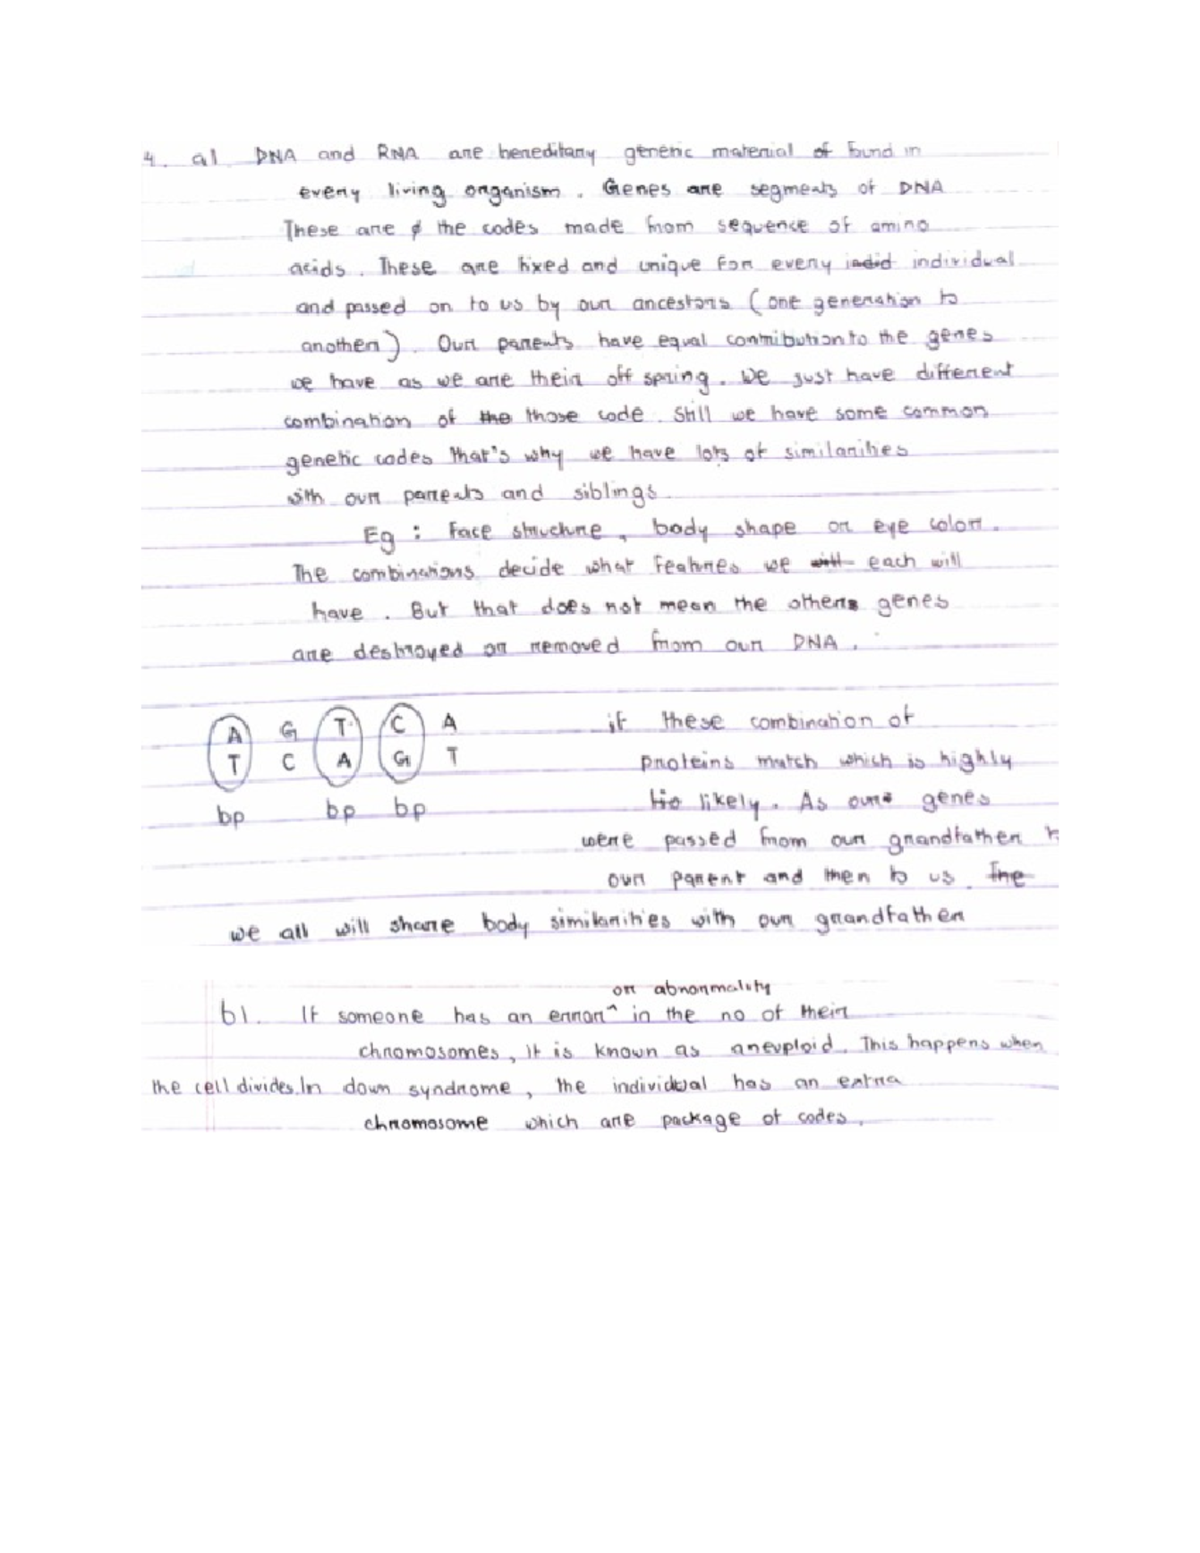 4. a) DNA and RNA are hereditary genetic material of found in
every living organism. Genes are segments of DNA
These are the codes made from sequence of amino
acids. These are fixed and unique for every indid individual
and passed on to us by our ancestors (one generation to
another). Our parents have equal contribution to the genes
we have as we are their off spring. We just have different
combination of the those code. Still we have some common
genetic codes that's why we have lots of similarities
with our parents and siblings.
Eg: Face structure, body shape or eye color.
The combinations decide what features we will each will
have. But that does not mean the others genes
are destroyed or removed from our DNA.
A G T C A
T C A G T
bp bp bp
if these combination of
proteins match which is highly
likely. As our genes
were passed from our grandfather to
our parent and then to us. The
we all will share body similarities with our grandfather
or abnormality
b). If someone has an error^ in the no of their
chromosomes, it is known as aneuploid. This happens when
the cell divides. In down syndrome, the individual has an extra
chromosome which are package of codes.